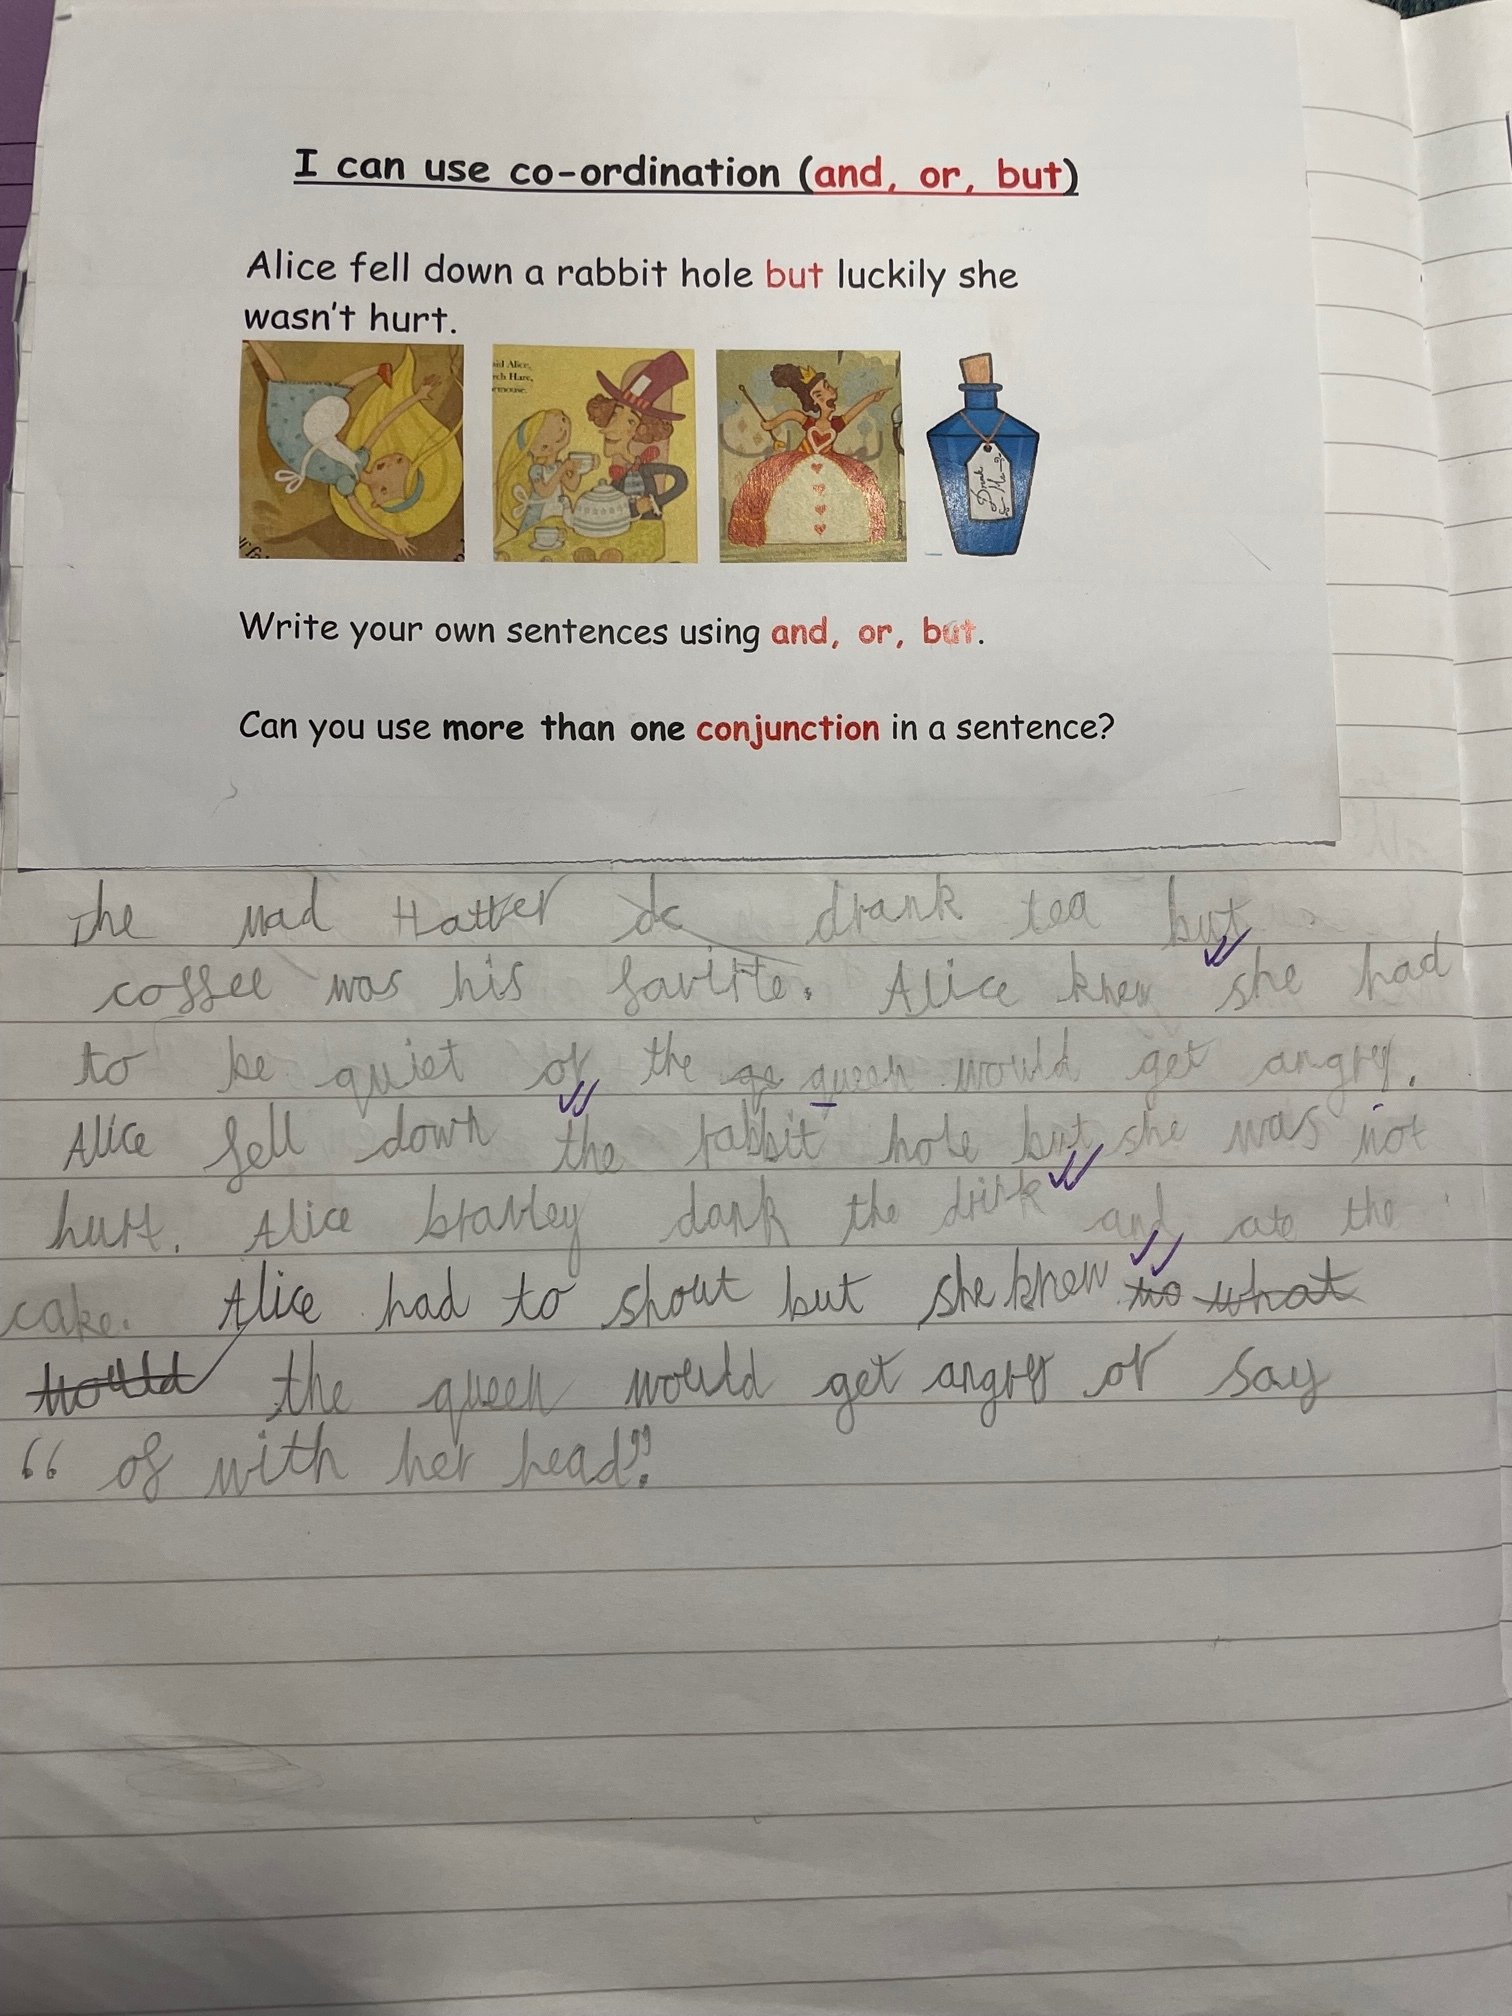 I can use co-ordination (and, or, but)
Alice fell down a rabbit hole but luckily she
wasn't hurt.
aid Alice,
rch Hare,
ermouse.
Drink
Me
Write your own sentences using and, or, but.
Can you use more than one conjunction in a sentence?
The Mad Hatter dc drank tea but
coffee was his favirite. Alice knew she had
to be quiet or the qe queen would get angry.
Alice fell down the rabbit hole but she was not
hurt. Alice bravley dank the drink and ate the
cake. Alice had to shout but she knew what
would the queen would get angry or say
“ of with her head”.